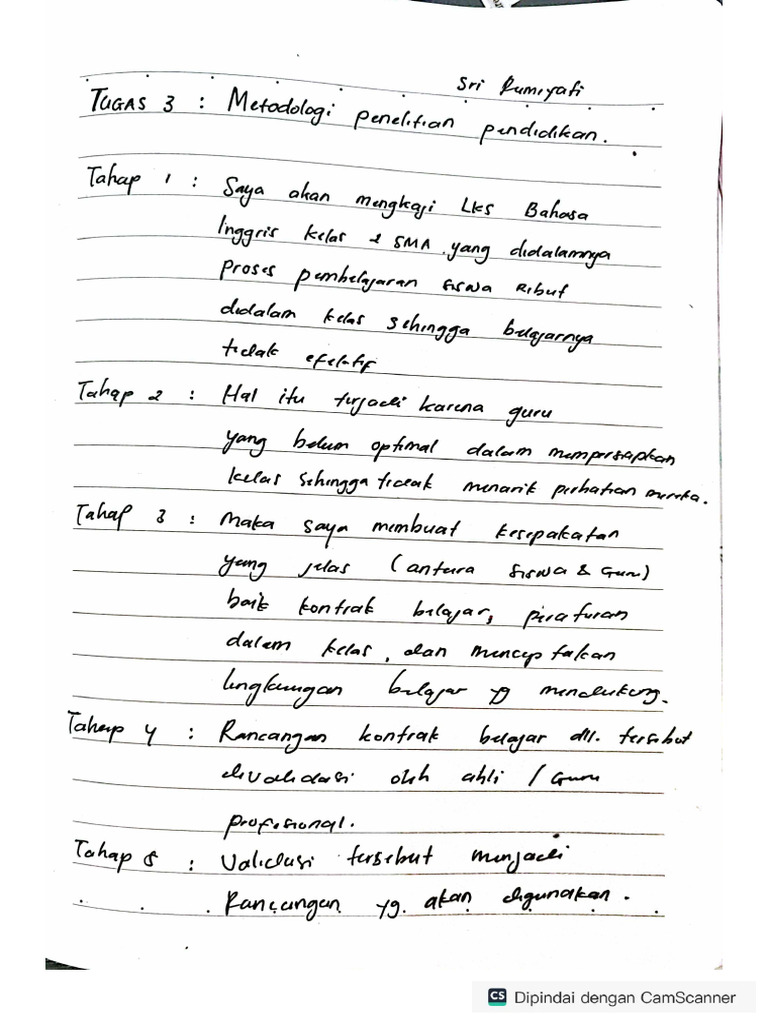 Sri Rumiyati
TUGAS 3 : Metodologi penelitian pendidikan.
Tahap 1 : Saya akan mengkaji LKS Bahasa
Inggris kelas 2 SMA yang didalamnya
proses pembelajaran siswa Ribut
didalam kelas sehingga belajarnya
tidak efektif
Tahap 2 : Hal itu terjadi karena guru
yang belum optimal dalam mempersiapkan
kelas sehingga tidak menarik perhatian mereka.
Tahap 3 : Maka saya membuat kesepakatan
yang jelas (antara siswa & Guru)
baik kontrak belajar, peraturan
dalam kelas, dan menciptakan
lingkungan belajar yg mendukung.
Tahap 4 : Rancangan kontrak belajar dll. tersebut
divalidasi oleh ahli / Guru
profesional.
Tahap 5 : Validasi tersebut menjadi
Rancangan yg. akan digunakan.
CS Dipindai dengan CamScanner